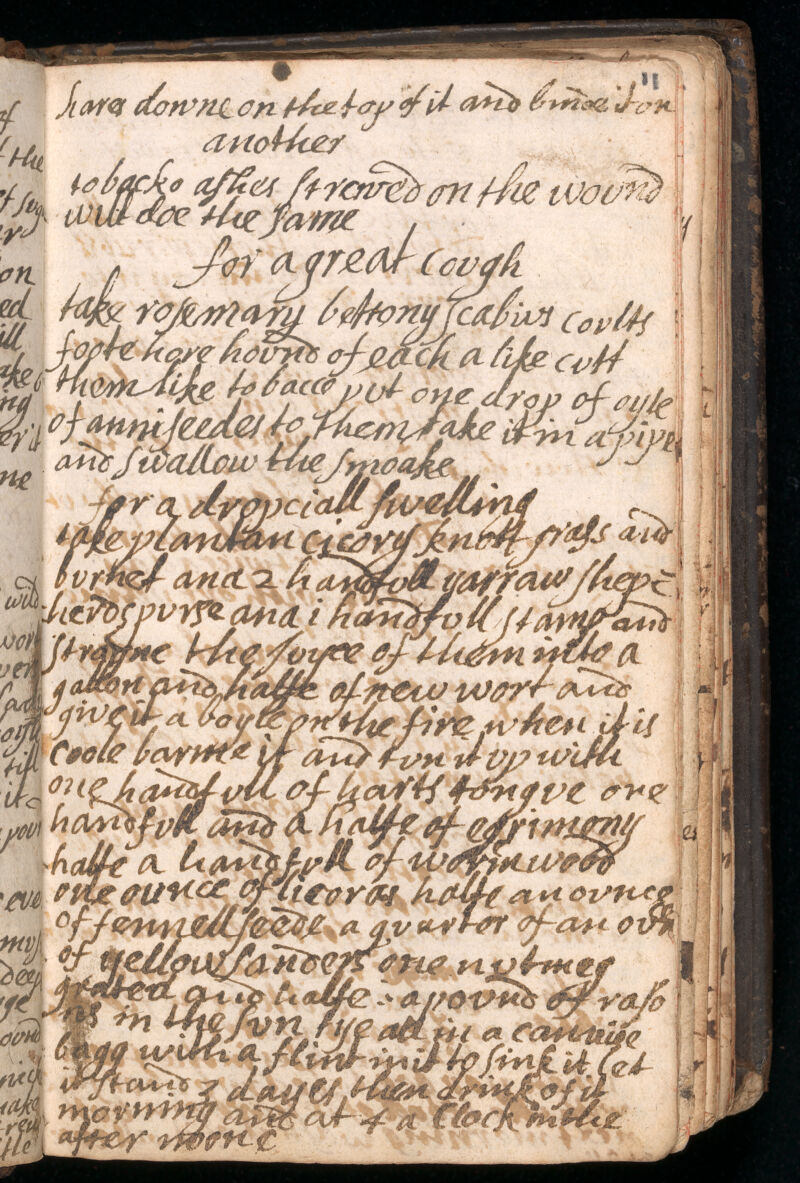 11
hares downe on the top of it and binde it on
another
tobacko ashes strewed on the wound
will doe the same
for a great cough
take rosemary bettony scabius coults
foote hore hound of each a like cutt
them like tobacco put one drop of oyle
of anniseedes to them take it in a pipe
and swallow the smoake
for a dropciall swelling
take plantan cicory knott grass and
burnet ana 2 handfull yarraw shep=
herds purse ana i handfull stamp and
strayne the juyce of them into a
gallon and halfe of new wort and
give it a boyle on the fire when it is
coole barme it and tun it up with
one handfull of harts tongue one
handfull and a halfe of egrimony
halfe a handfull of wormwood
one ounce of licoras halfe an ounce
of fennell seede a quarter of an
of yellow sanders one nutmeg
grated and halfe a pound of raso
ns in the sun tye all in a canvise
bagg with a flint in it to sink it let
it stand 3 dayes then drink of it
morning and at 4 a Clock in the
after noone